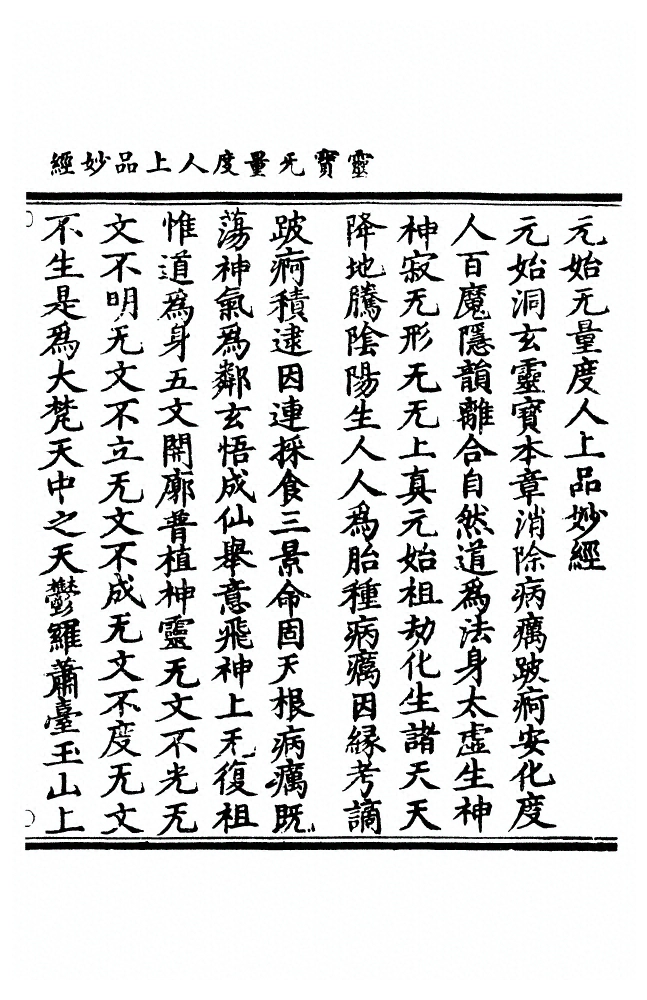 靈寶无量度人上品妙經
元始无量度人上品妙經
元始洞玄靈寶本章消除病癘跛痾安化度
人百魔隱韻離合自然道為法身太虛生神
神寂无形无无上真元始祖劫化生諸天天
降地騰陰陽生人人為胎種病癘因緣考謫
跛痾積逮因連採食三景命固天根病癘既
蕩神氣為鄰玄悟成仙舉意飛神上无復祖
惟道為身五文開廓普植神靈无文不光无
文不明无文不立无文不成无文不度无文
不生是為大梵天中之天鬱羅蕭臺玉山上